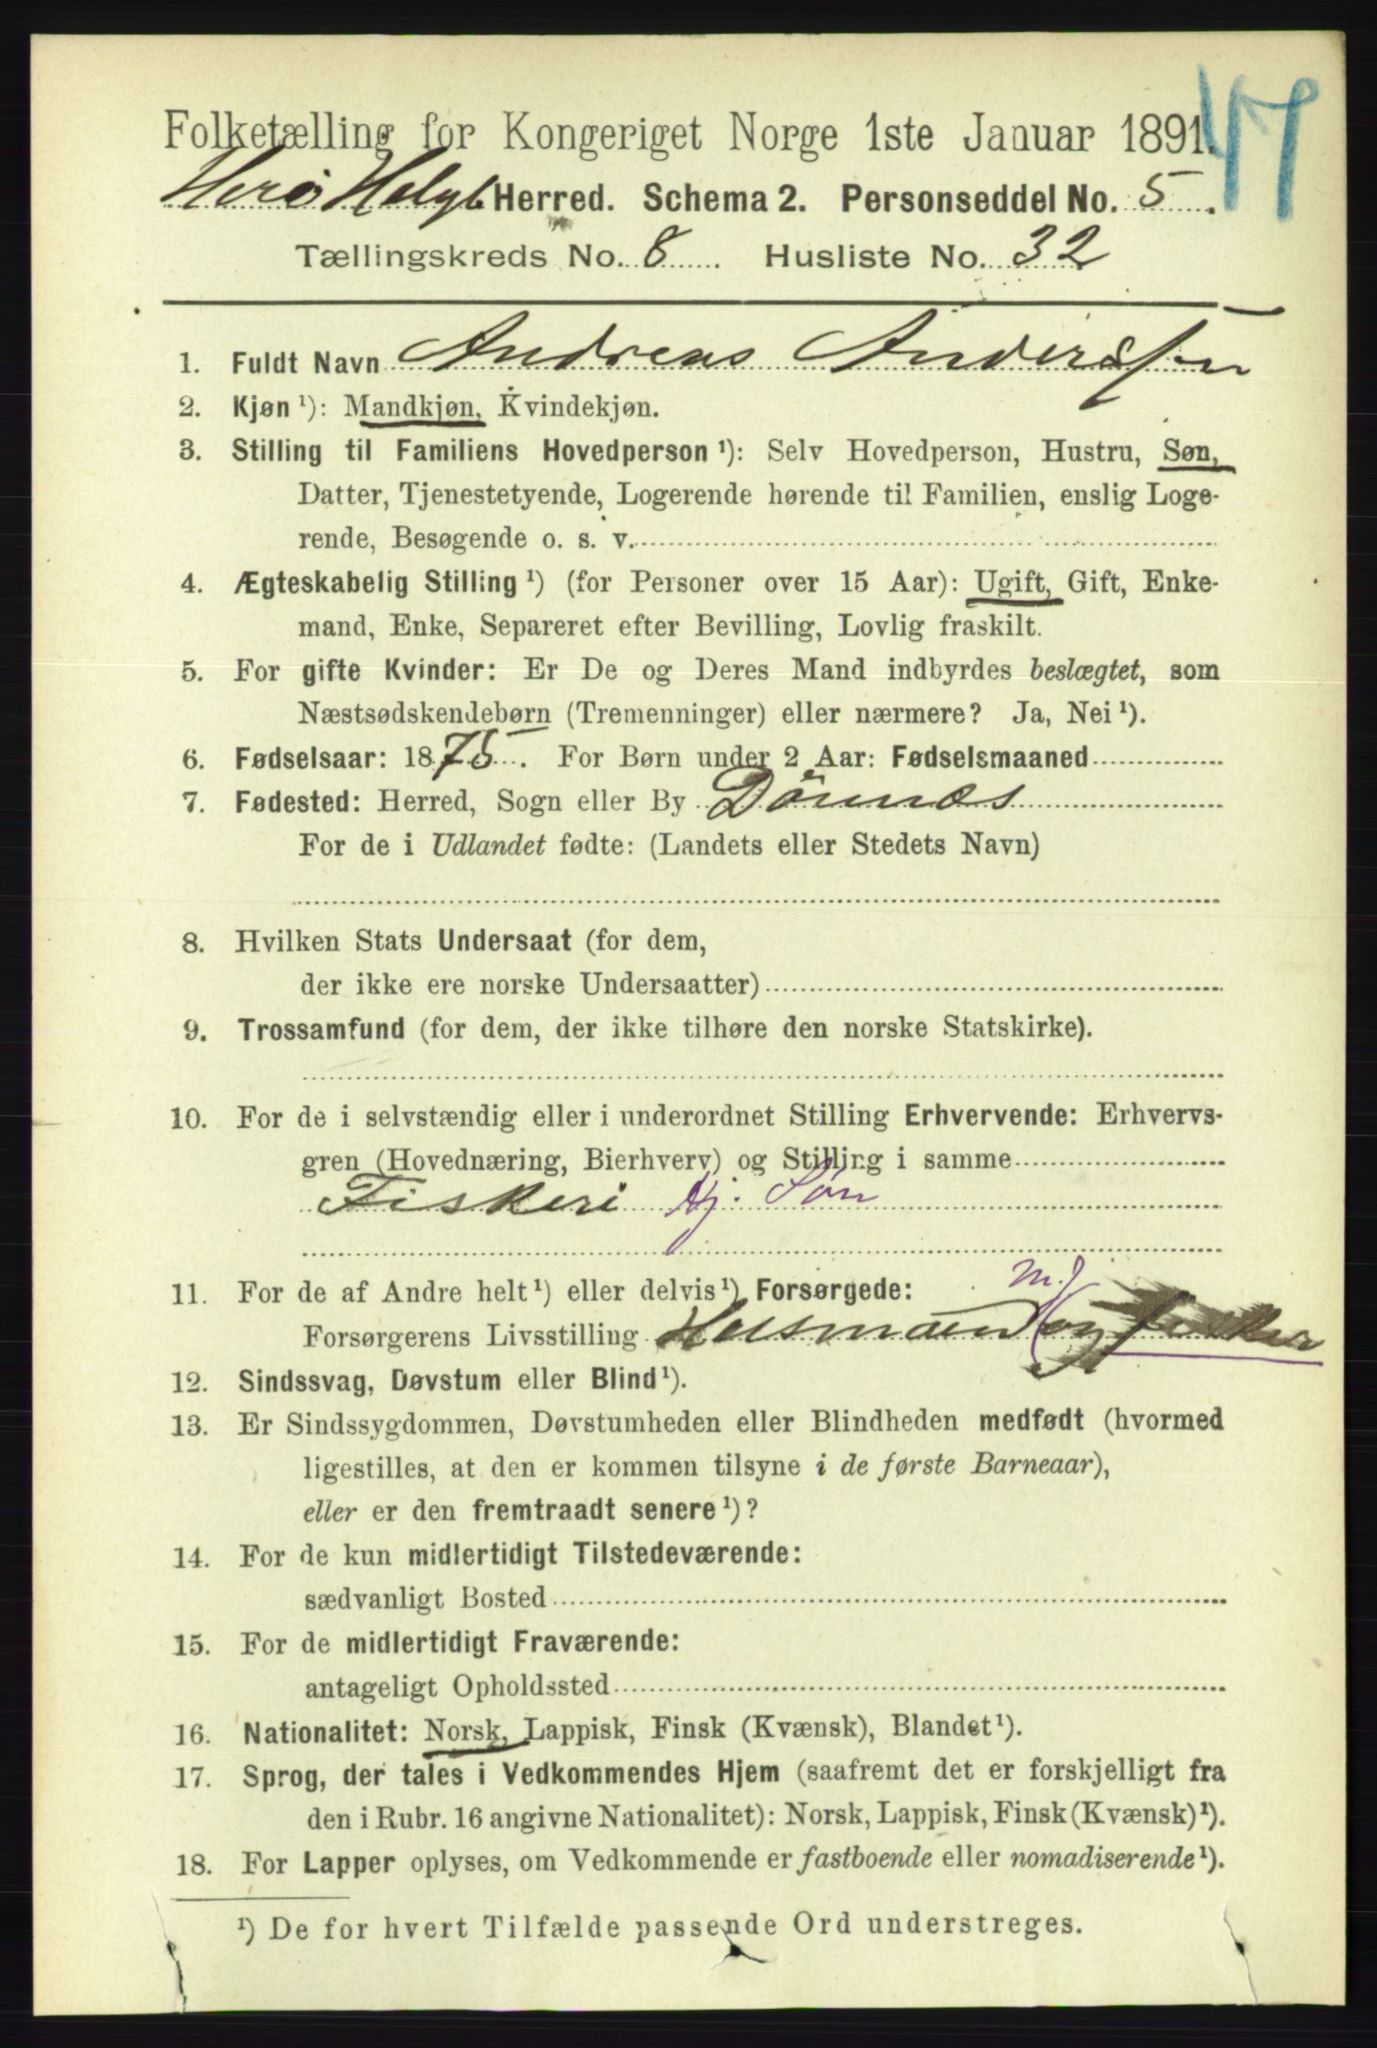 Folketælling for Kongeriget Norge 1ste Januar 1891.
17
Herø Helgl. Herred. Schema 2. Personseddel No. 5.
Tællingskreds No. 8. Husliste No. 32
1. Fuldt Navn Andreas Anderssen
2. Kjøn ¹): Mandkjøn, Kvindekjøn.
3. Stilling til Familiens Hovedperson ¹): Selv Hovedperson, Hustru, Søn,
Datter, Tjenestetyende, Logerende hørende til Familien, enslig Loge-
rende, Besøgende o. s. v.
4. Ægteskabelig Stilling ¹) (for Personer over 15 Aar): Ugift, Gift, Enke-
mand, Enke, Separeret efter Bevilling, Lovlig fraskilt.
5. For gifte Kvinder: Er De og Deres Mand indbyrdes beslægtet, som
Næstsødskendebørn (Tremenninger) eller nærmere? Ja, Nei ¹).
6. Fødselsaar: 1875. For Børn under 2 Aar: Fødselsmaaned
7. Fødested: Herred, Sogn eller By Dönnæs
For de i Udlandet fødte: (Landets eller Stedets Navn)
8. Hvilken Stats Undersaat (for dem,
der ikke ere norske Undersaatter)
9. Trossamfund (for dem, der ikke tilhøre den norske Statskirke).
10. For de i selvstændig eller i underordnet Stilling Erhvervende: Erhvervs-
gren (Hovednæring, Bierhverv) og Stilling i samme
Fiskeri Hj. Søn
11. For de af Andre helt ¹) eller delvis ¹) Forsørgede:
m. J
Forsørgerens Livsstilling Husmand og fisker
12. Sindssvag, Døvstum eller Blind ¹).
13. Er Sindssygdommen, Døvstumheden eller Blindheden medfødt (hvormed
ligestilles, at den er kommen tilsyne i de første Barneaar),
eller er den fremtraadt senere ¹)?
14. For de kun midlertidigt Tilstedeværende:
sædvanligt Bosted
15. For de midlertidigt Fraværende:
antageligt Opholdssted
16. Nationalitet: Norsk, Lappisk, Finsk (Kvænsk), Blandet ¹).
17. Sprog, der tales i Vedkommendes Hjem (saafremt det er forskjelligt fra
den i Rubr. 16 angivne Nationalitet): Norsk, Lappisk, Finsk (Kvænsk) ¹).
18. For Lapper oplyses, om Vedkommende er fastboende eller nomadiserende ¹).
¹) De for hvert Tilfælde passende Ord understreges.